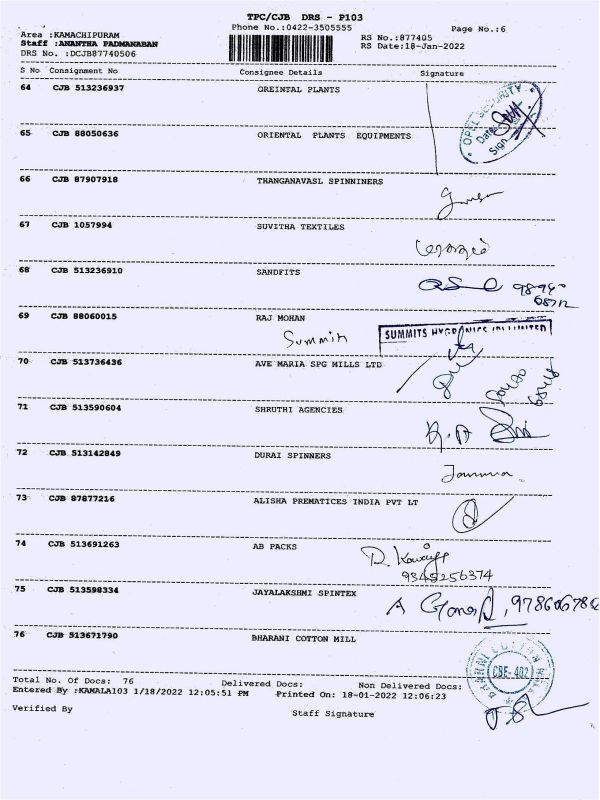 TPC/CJB DRS - P103
Phone No.:0422-3505555
Page No.:6
Area :KAMACHIPURAM
RS No.:877405
Staff :ANANTHA PADMANABAN
RS Date:18-Jan-2022
DRS No. :DCJB87740506
S No Consignment No Consignee Details Signature
64 CJB 513236937 OREINTAL PLANTS
65 CJB 88050636 ORIENTAL PLANTS EQUIPMENTS
66 CJB 87907918 THANGANAVASL SPINNINERS
67 CJB 1057994 SUVITHA TEXTILES
68 CJB 513236910 SANDFITS
69 CJB 88060015 RAJ MOHAN
Summith
SUMMITS
70 CJB 513736436 AVE MARIA SPG MILLS LTD
71 CJB 513590604 SHRUTHI AGENCIES
72 CJB 513142849 DURAI SPINNERS
73 CJB 87877216 ALISHA PREMATICES INDIA PVT LT
74 CJB 513691263 AB PACKS
9345256374
75 CJB 513598334 JAYALAKSHMI SPINTEX
76 CJB 513671790 BHARANI COTTON MILL
CBE-402
Total No. Of Docs: 76 Delivered Docs: Non Delivered Docs:
Entered By :KAMALA103 1/18/2022 12:05:51 PM Printed On: 18-01-2022 12:06:23
Verified By Staff Signature